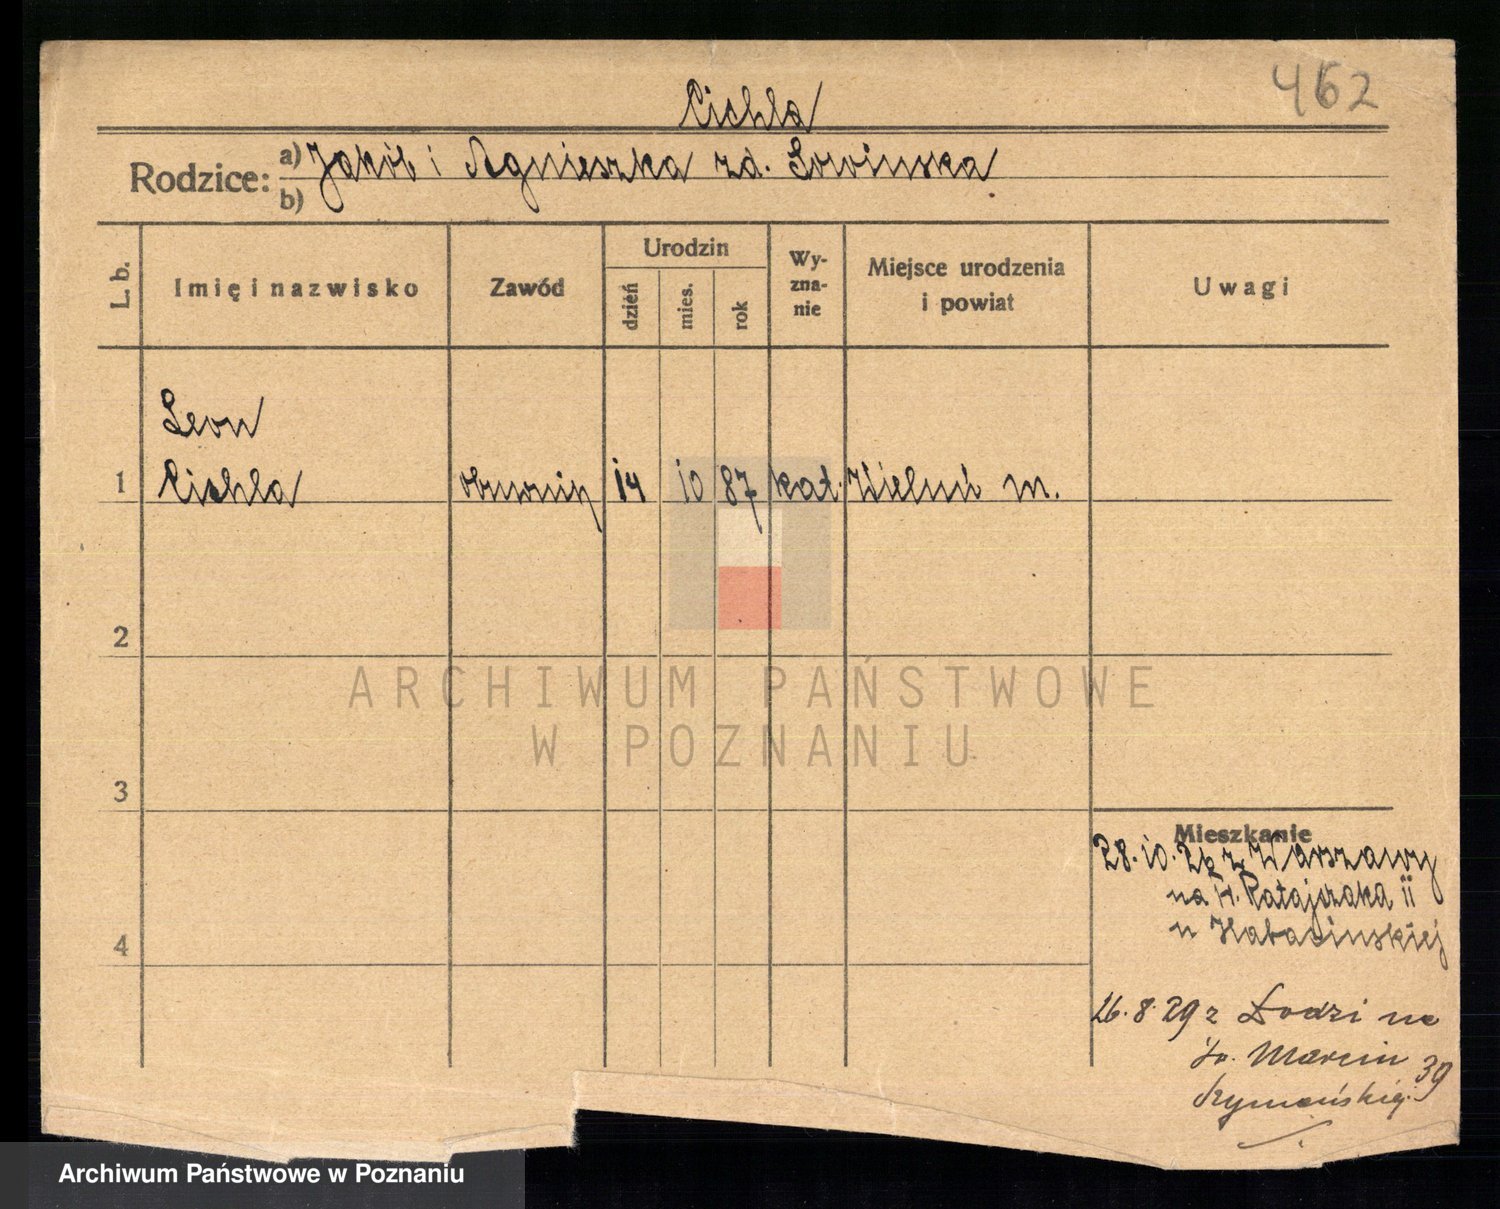 462
Cichla
Rodzice: a) Jakób i Agnieszka zd. Lowinska
b)
L. b.
Imię i nazwisko
Zawód
Urodzin
dzień
mies.
rok
Wy-
zna-
nie
Miejsce urodzenia
i powiat
Uwagi
Leon
1 Cichla obuwnik 14 10 87 kat. Wieluń m.
2
ARCHIWUM PAŃSTWOWE
W POZNANIU
3
Mieszkanie
28.10.26 z Warszawy
na Fr. Ratajczaka 11
u
4
26.8.29 z Łodzi na
Św. Marcin 39
Szymańskiej
Archiwum Państwowe w Poznaniu